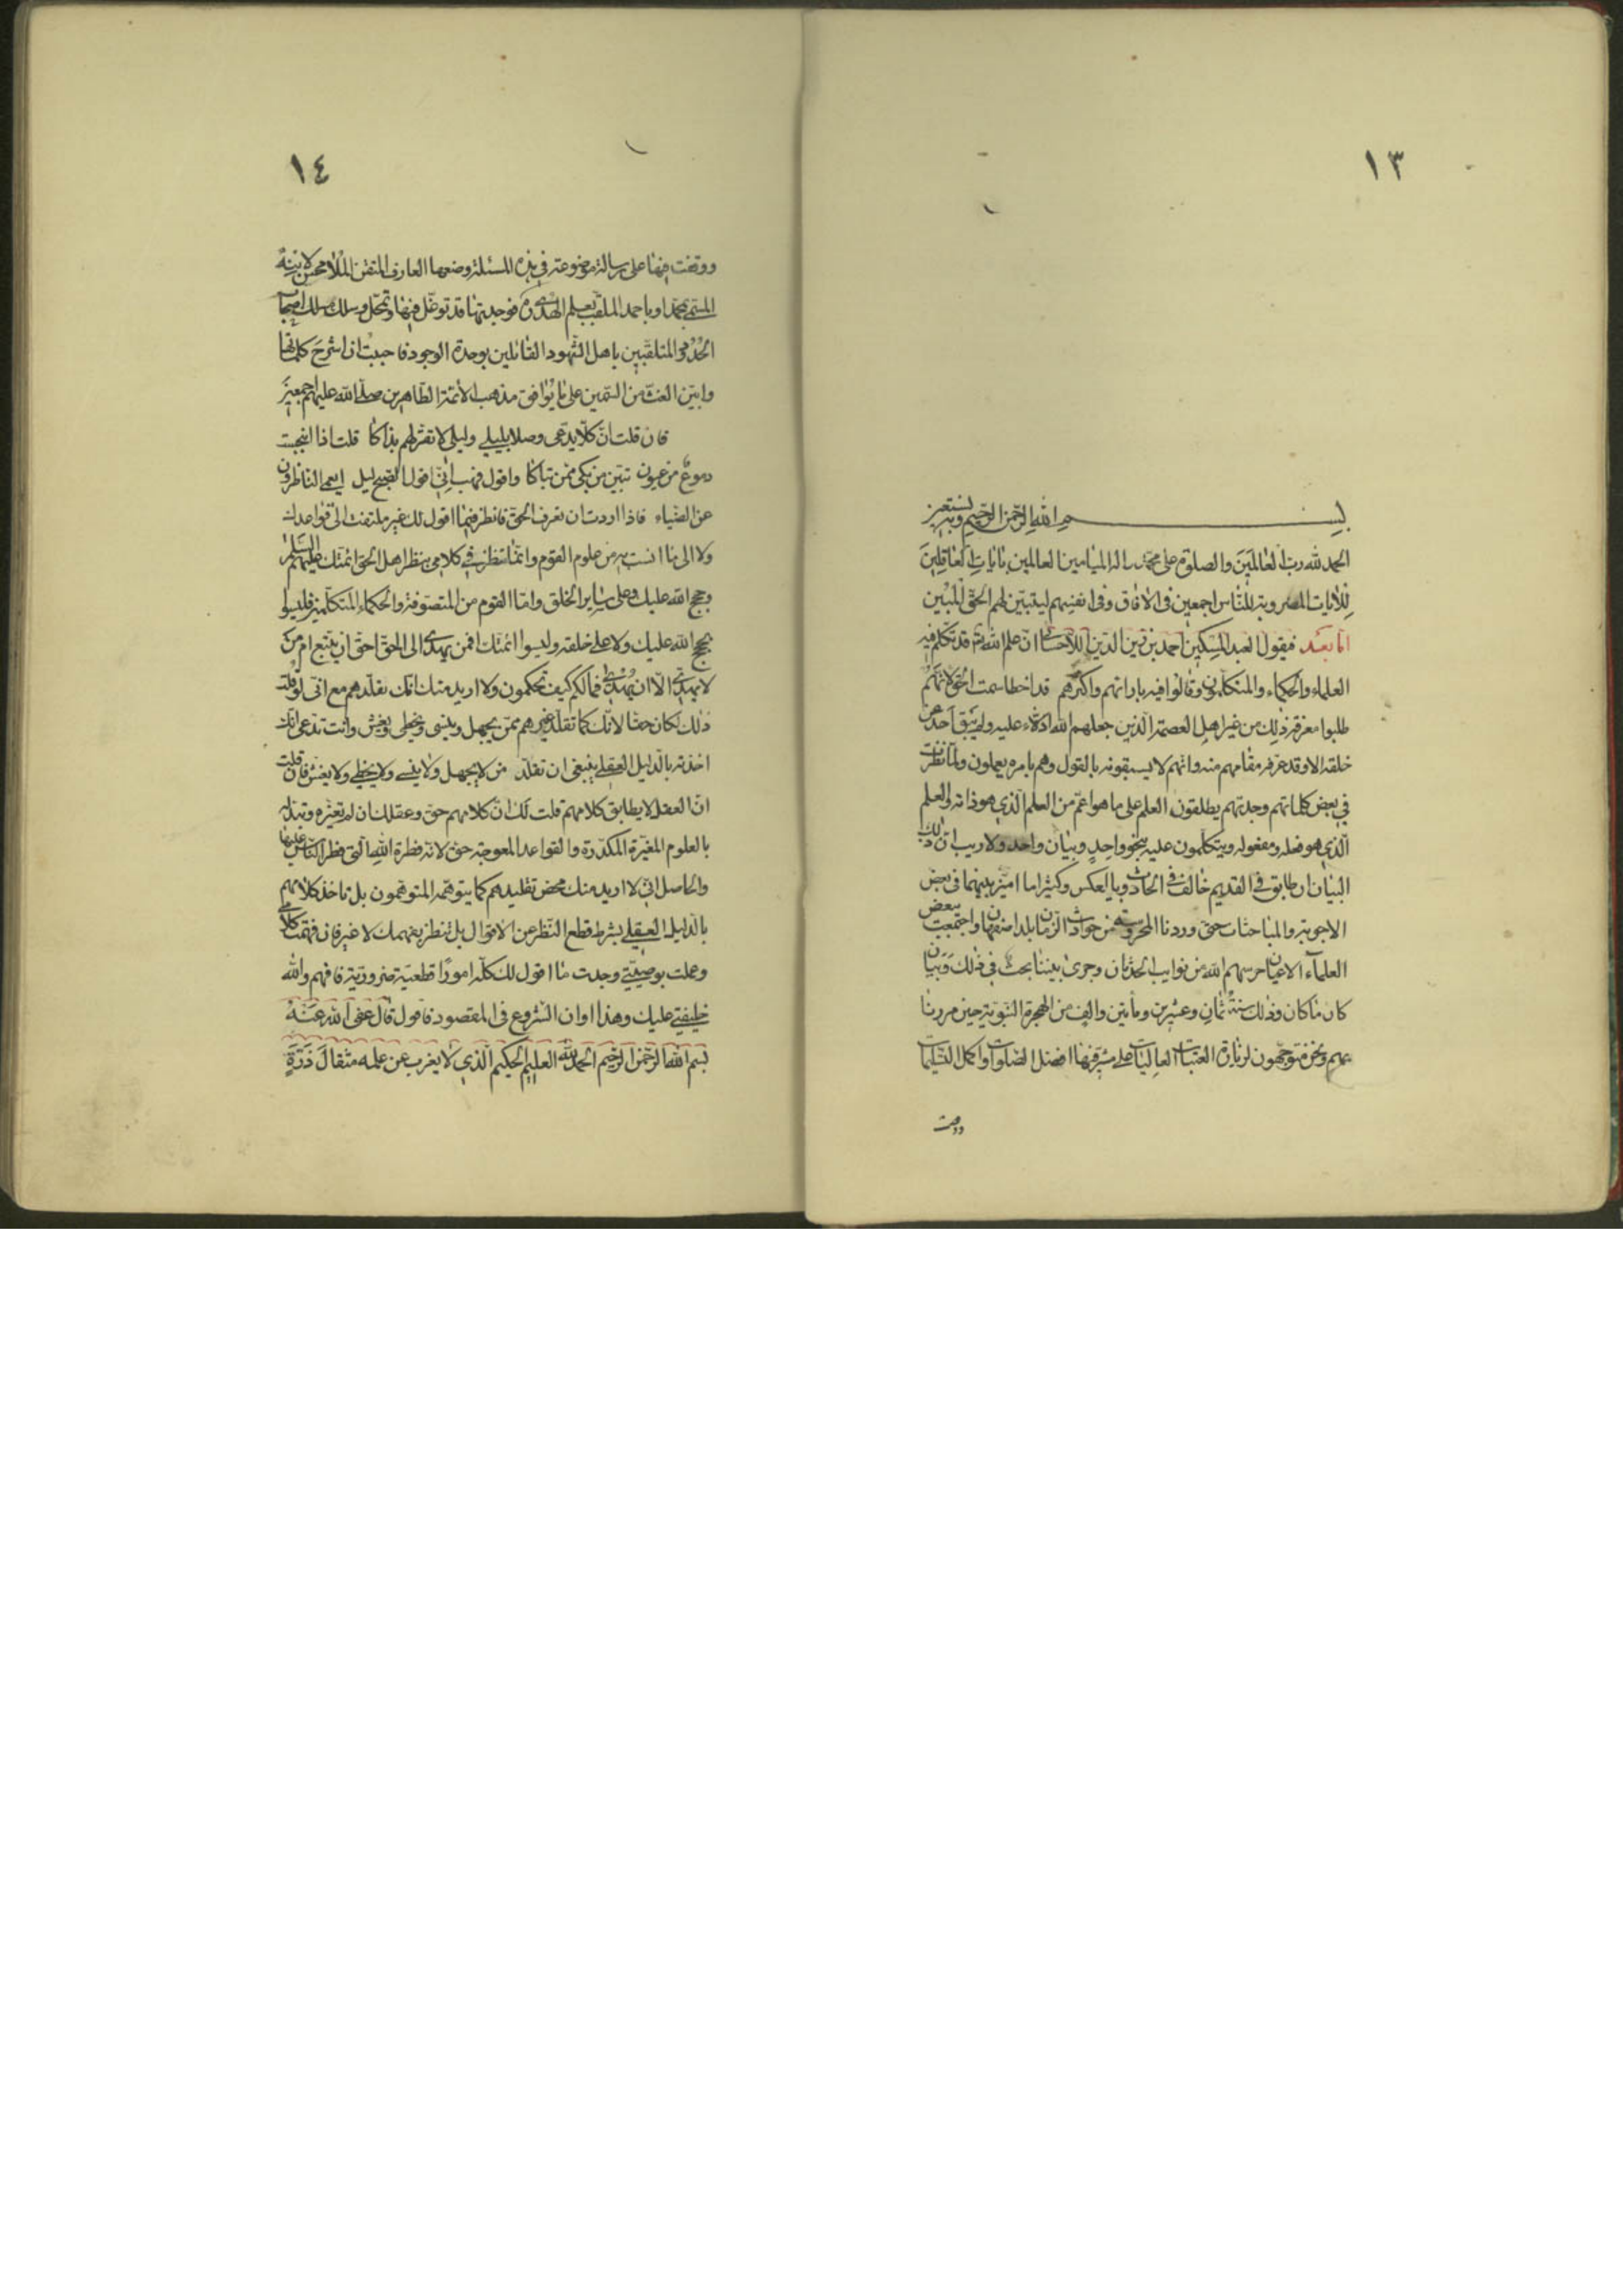 ١٣
بسم الله الرحمن الرحيم وبه نستعين
الحمد لله رب العالمين والصلوة على محمد واله الميامين العالمين بايات العاقلين
للايات المضروبة للناس اجمعين في الافاق وفي انفسهم ليتبين لهم الحق المبين
اما بعد فيقول العبد المسكين احمد بن زين الدين الاحسائي ان علم الله قد تكلم فيه
العلماء والحكماء والمتكلمون وقالوا فيه باراتهم واكثرهم قد اخطا سمت الحق لانهم
طلبوا معرفة ذلك من غير اهل العصمة الذين جعلهم الله ادلاء عليه ولم يبق احد من
خلقه الا وقد عرفه مقامهم منه وانهم لا يسبقونه بالقول وهم بامره يعملون ولما نظرت
في بعض كلماتهم وجدتهم يطلقون العلم على ما هو اعم من العلم الذي هو ذاته والعلم
الذي هو فعله ومفعوله ويتكلمون عليه بنحو واحد وبيان واحد ولا ريب ان ذلك
البيان ان طابق في القديم خالف في الحادث وبالعكس وكثيرا ما اميز بينهما في بعض
الاجوبة والمباحثات حتى وردنا المحروسة من حوادث الزمان بلد اصفهان واجتمعت ببعض
العلماء الاعيان حرسهم الله من نوايب الحدثان وجرى بيننا بحث في ذلك وبيان
كان ما كان وذلك سنة ثمان وعشرين ومأتين والف من الهجرة النبوية حين مررنا
بهم ونحن متوجهون لزيارة العتبات العاليات على مشرفها افضل الصلوات واكمل التسليمات
ووقفت
١٤
ووقفت فيها على رسالة موضوعة في هذه المسئلة وضعها العارف المتقن الملا محسن لابنه
المسمى بمحمد او باحمد الملقب بعلم الهدى فوجدتها قد توغل فيها وتمحل وسلك مسلك اصحاب
المتلقبين باهل الشهود القائلين بوحدة الوجود فاحببت ان اشرح كلماتها
وابين الغث من السمين على ما يوافق مذهب الائمة الطاهرين صلى الله عليهم اجمعين
فان قلت ان كلا يدعي وصلا بليلى وليلى لا تقر لهم بذاكا قلت اذا انبجست
دموع من عيون تبين من بكى ممن تباكا واقول فهب اني اقول الصبح ليل ايعمى الناظرون
عن الضياء فاذا اردت ان تعرف الحق فانظر فيما اقول لك غير ملتفت الى قواعدك
ولا الى ما انست به من علوم القوم وانما تنظر في كلامي بنظر اهل الحق ائمتك عليهم السلام
وحجج الله عليك وعلى ساير الخلق واما القوم من المتصوفة والحكماء المتكلمين فليسوا
بحجج الله عليك ولا على خلقه وليسوا ائمتك افمن يهدى الى الحق احق ان يتبع ام من
لا يهدى الا ان يهدى فما لكم كيف تحكمون ولا اريد منك انك تقلدهم مع اني لو قلت
ذلك لكان حقا لانك كما تقلد غيرهم ممن يجهل وينسى ويخطى ويغش وانت تدعي انك
اخذته بالدليل العقلي ينبغي ان تقلد من لا يجهل ولا ينسى ولا يخطي ولا يغش فان قلت
ان العقل لا يطابق كلامهم قلت لك ان كلامهم حق وعقلك ان لم تغيره وتبدله
بالعلوم المغيرة المكدرة والقواعد المعوجة حق لانه فطرة الله التي فطر الناس عليها
والحاصل اني لا اريد منك محض تقليدهم كما يتوهمه المتوهمون بل تاخذ كلامهم
بالدليل العقلي بشرط قطع النظر عن الاقوال بل تنظر بفهمك لا غير فان فهمت كلامي
وعملت بوصيتي وجدت ما اقول لك كله امورا قطعية ضرورية فافهم والله
خليفتي عليك وهذا اوان الشروع في المقصود فاقول قال عفى الله عنه
بسم الله الرحمن الرحيم الحمد لله العليم الحكيم الذي لا يغرب عن علمه مثقال ذرة